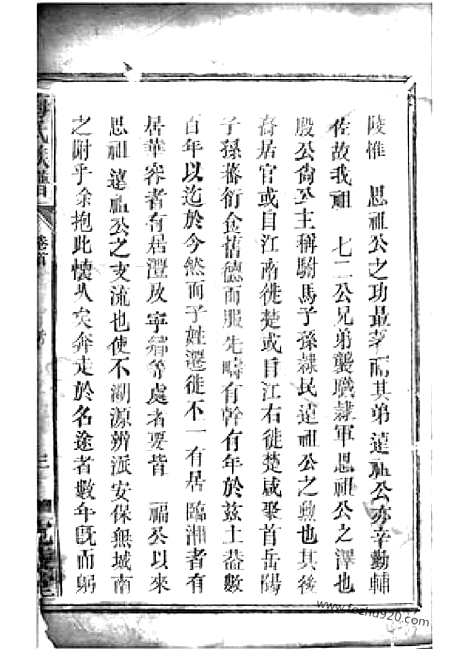 陵惟　思祖公之功最著而其弟遠祖公亦辛勤輔
佐故我祖　七二公兄弟襲職隷軍思祖公之澤也
殷公尙公主稱駙馬子孫隷民遠祖公之勲也其後
裔居官或自江南徙楚或自江右徙楚咸聚首岳陽
子孫蕃衍食舊德而服先疇有幹有年於兹土益數
百年以迄於今然而子姓遷徙不一有居臨湘者有
居華容者有居澧及寧鄉等處者要皆　福公以來
思祖遠祖公之支流也使不溯源辨派安保無城南
之附乎余抱此懷久矣奔走於名途者數年旣而躬
氏族譜
卷首
三
www.fozhu920.com